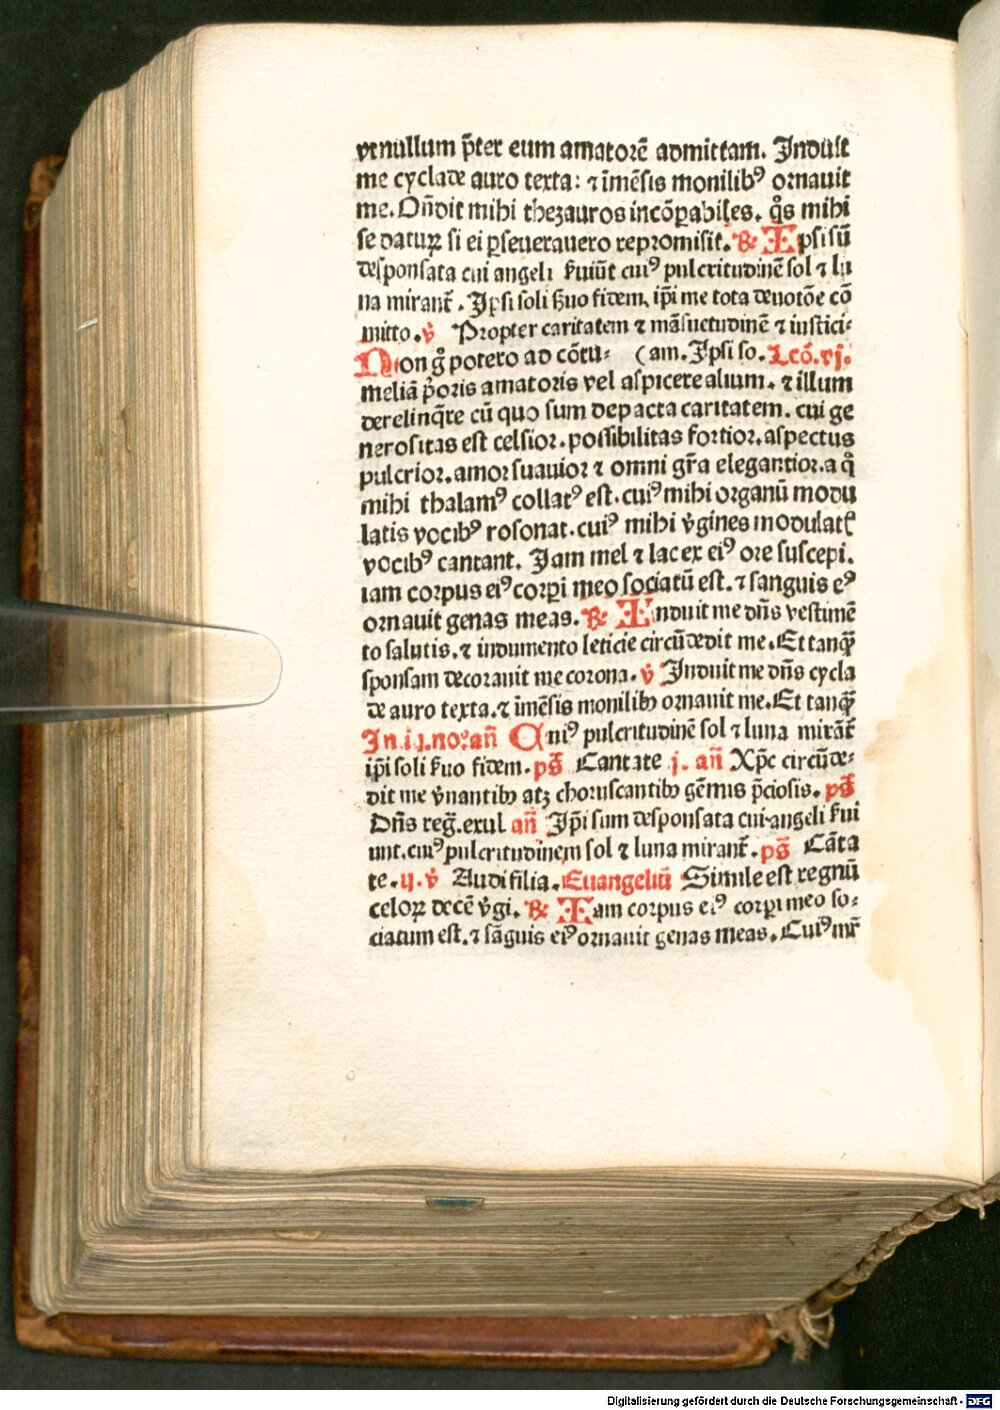 vt nullum p̄ter eum amatorē admittam. Induit
me cyclade auro texta: ⁊ īmēsis monilibꝰ ornauit
me. Oñdit mihi thezauros incōꝑabiles. q̄s mihi
se daturꝝ si ei ꝑseuerauero repromisit. ℟ Ipsi sū
desponsata cui angeli ẜuiūt cuiꝰ pulcritudinē sol ⁊ lu
na mirant᷑. Ipsi soli ẜuo fidem, ip̄i me tota deuotōe cō
mitto. ℣ Propter caritatem ⁊ māsuetudinē ⁊ iustici⸗
Non g̊ potero ad cōtu⸗ (am. Ipsi so. Lcō. vj.
meliā p̓oris amatoris vel aspicere alium. ⁊ illum
derelinq̄re cū quo sum depacta caritatem. cui ge
nerositas est celsior. possibilitas fortior. aspectus
pulcrior. amor suauior ⁊ omni gr̄a elegantior. a q̊
mihi thalamꝰ collatꝰ est. cuiꝰ mihi organū modu
latis vocibꝰ rosonat. cuiꝰ mihi v̓gines modulatꝭ
vocibꝰ cantant. Jam mel ⁊ lac ex eiꝰ ore suscepi.
iam corpus eiꝰ corꝑi meo sociatū est. ⁊ sanguis eꝰ
ornauit genas meas. ℟ Induit me dñs vestimē
to salutis. ⁊ indumento leticie circūdedit me. Et tanqꝫ
sponsam decorauit me corona. ℣ Induit me dñs cycla
de auro texta. ⁊ īmēsis monilibꝫ ornauit me. Et tanqꝫ
In .ij. no. añ Cuiꝰ pulcritudinē sol ⁊ luna mirāt᷑
ip̄i soli ẜuo fidem. ps̄ Cantate j. añ Xp̄c circūde⸗
dit me v̓nantibꝫ atꝫ choruscantibꝫ gēmis p̄ciosis. ps̄
Dñs reg̃. exul añ Ip̄i sum desponsata cui angeli ẜui
unt. cuiꝰ pulcritudinem sol ⁊ luna mirant᷑. ps̄ Cāta
te. ij. ℣ Audi filia. Euangeliū Simile est regnū
celoꝝ decē v̓gi. ℟ Iam corpus eiꝰ corꝑi meo so⸗
ciatum est. ⁊ sāguis eiꝰ ornauit genas meas. Cuiꝰ mr̄
Digitalisierung gefördert durch die Deutsche Forschungsgemeinschaft - DFG